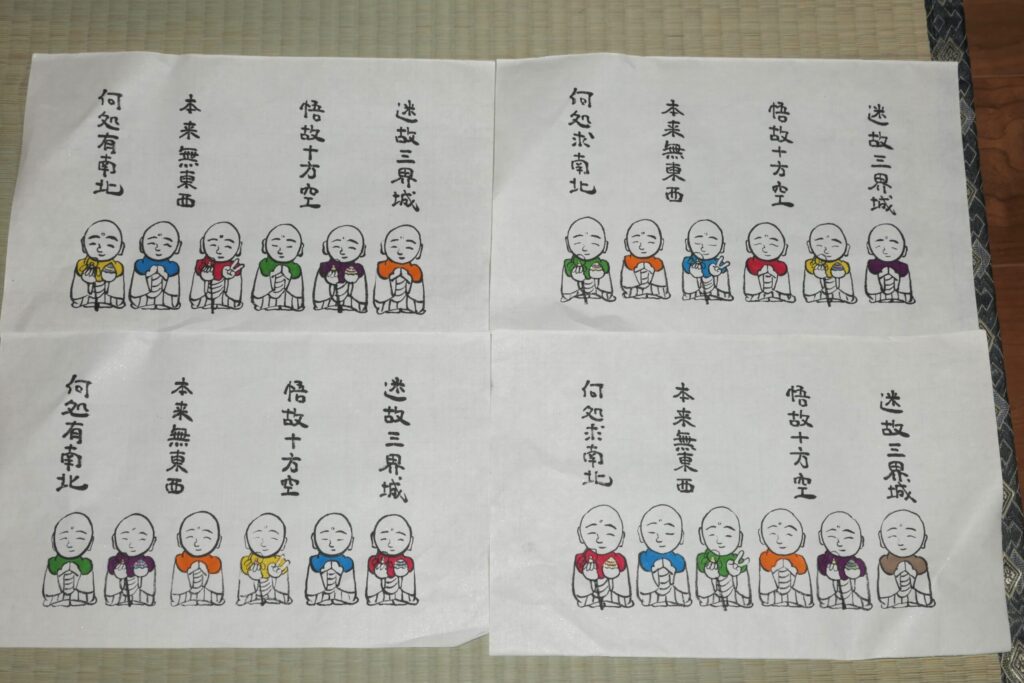 迷故三界城
悟故十方空
本来無東西
何処有南北
迷故三界城
悟故十方空
本来無東西
何処求南北
迷故三界城
悟故十方空
本来無東西
何処有南北
迷故三界城
悟故十方空
本来無東西
何処求南北